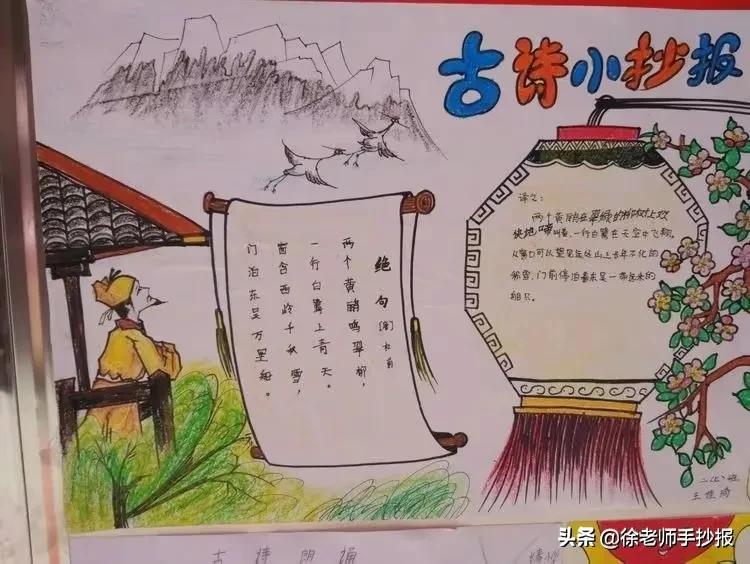 古诗小抄报
绝句 [唐]杜甫
两个黄鹂鸣翠柳,
一行白鹭上青天。
窗含西岭千秋雪,
门泊东吴万里船。
译文:
两个黄鹂在翠绿的柳树上欢
快地鸣叫着,一行白鹭在天空中飞翔。
从窗口可以望见山上千年不化的
积雪,门前停泊着东吴一带来的
船只。
二(七)班
古诗朗诵
头条 @徐老师手抄报